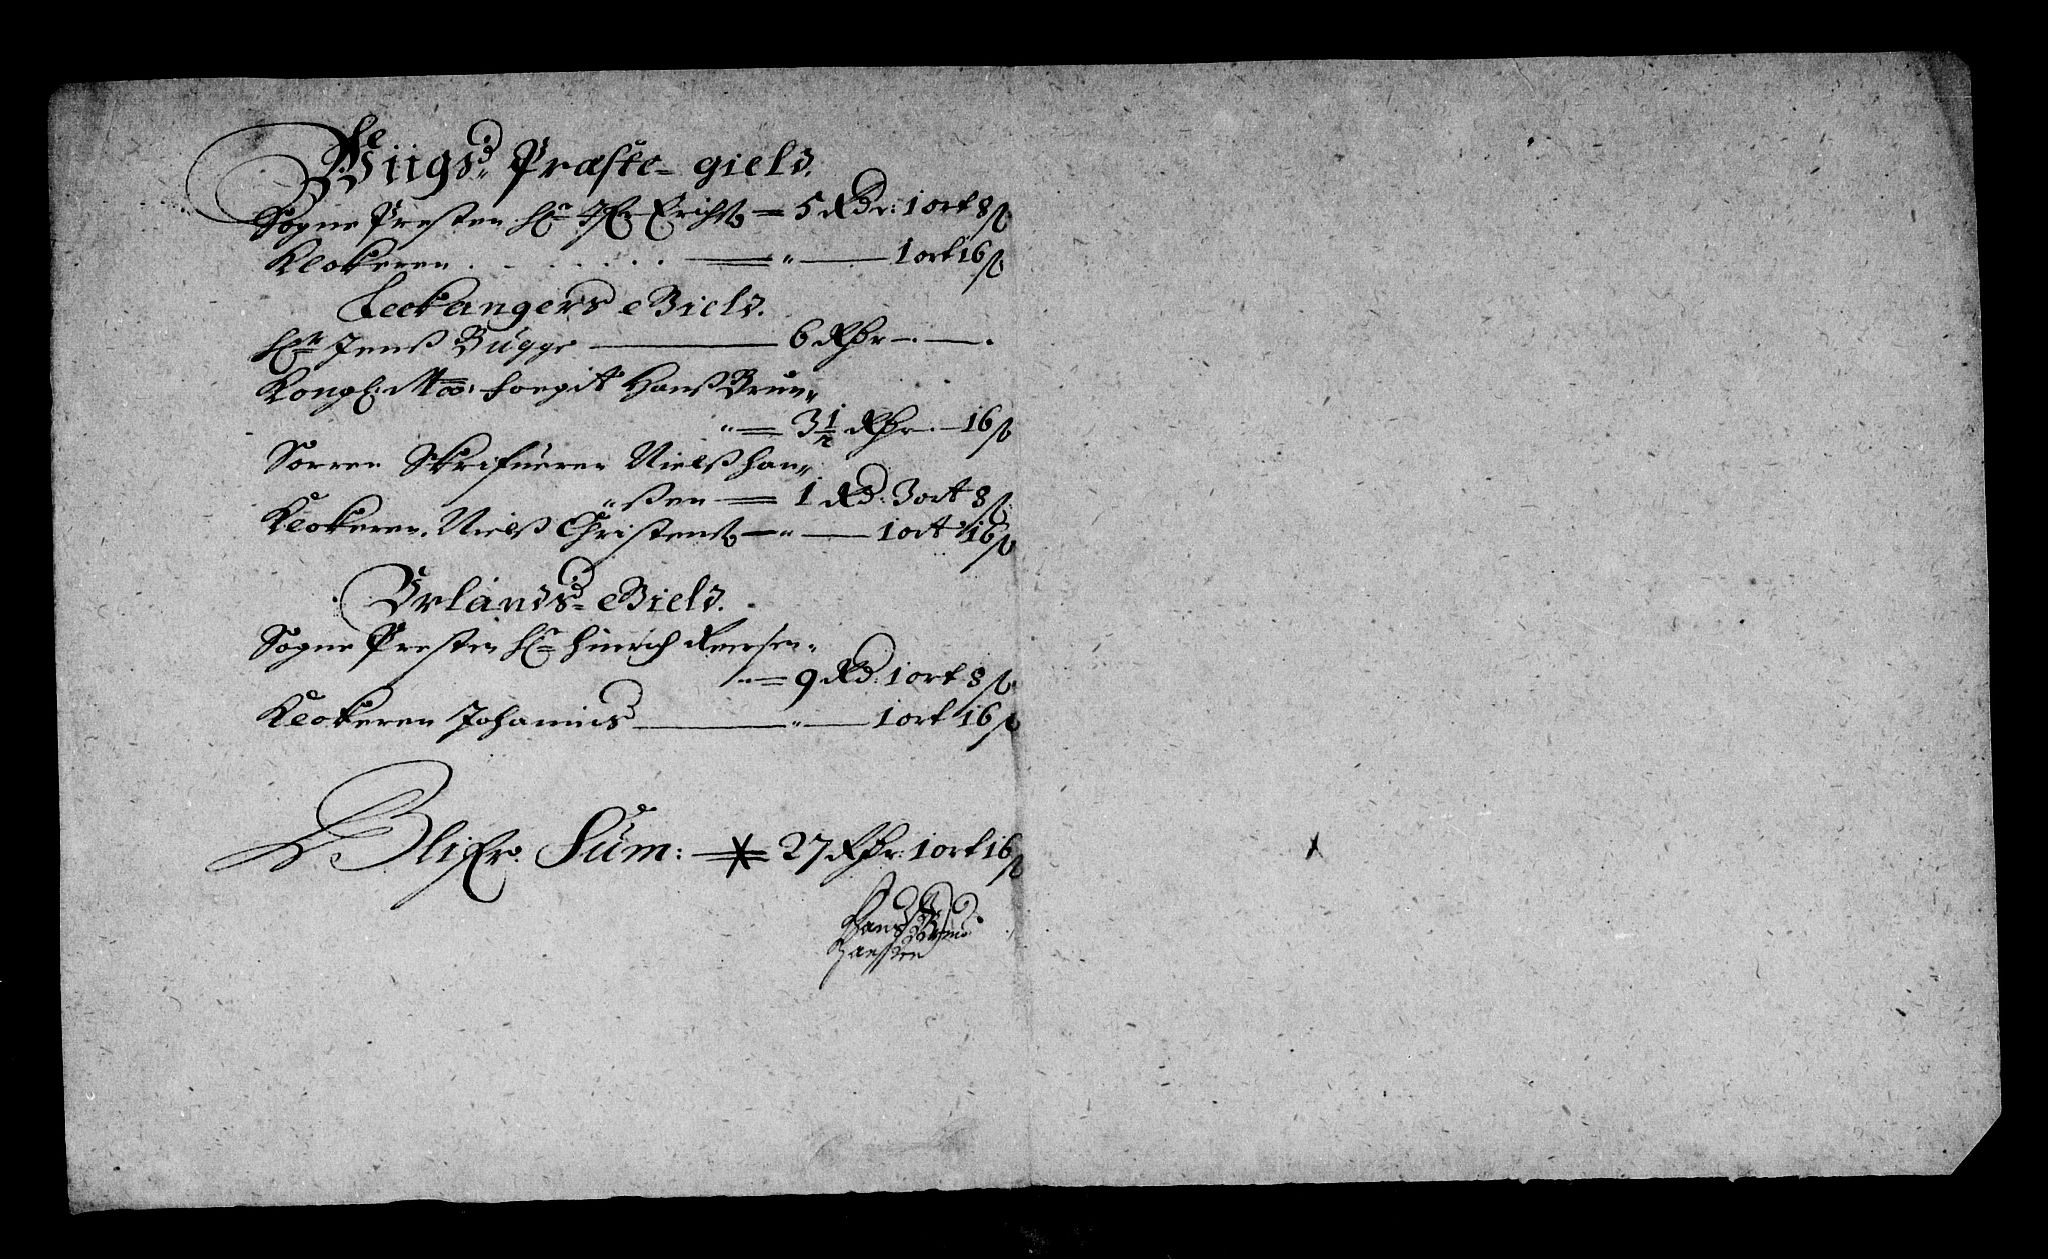 Wiigs Præste-gield.
Sogne Presten Hr Erichs = 5 Rdr: 1 ort 8 ß
Klokeren . . . . . . . = " — 1 ort 16 ß
Leckangers Gield.
Hr Jenß Bugge — 6 Rdr — . — .
Kongl: Maÿ: foegit Hanß Bruu„
„ = 3 1/2 Rdr — 16 ß
Sorren Skrifueren Nielß Han„
„ßen = 1 Rd: 3 ort 8 ß
Klokeren Nielß Christenß — „ — 1 ort 16 ß
Urlands- Gield.
Sogne Presten Hr Hinrich
= 9 Rd: 1 ort 8 ß
Klokeren Johannis — „ — 1 ort 16 ß
Blifr Sum: = 27 Rdr: 1 ort 16 ß
Hans
Hanssen